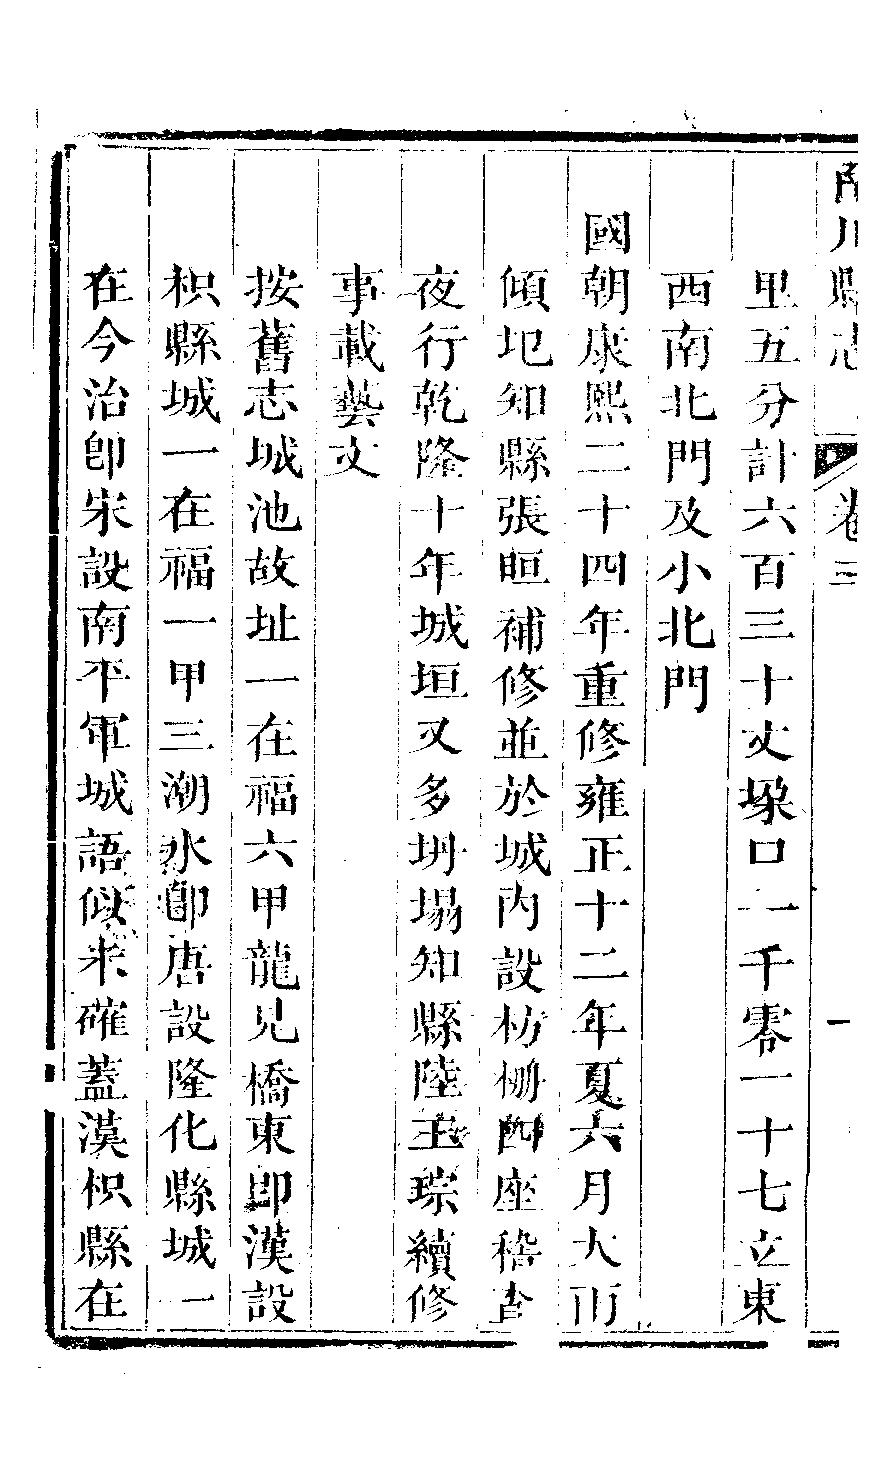 南川縣志 卷三 一
里五分計六百三十丈垛口一千零一十七立東
西南北門及小北門
國朝康熙二十四年重修雍正十二年夏六月大雨
傾圯知縣張晅補修並於城內設枋柵四座稽查
夜行乾隆十年城垣又多坍塌知縣陸玉琮續修
事載藝文
按舊志城池故址一在福六甲龍見橋東卽漢設
枳縣城一在福一甲三潮水卽唐設隆化縣城一
在今治卽宋設南平軍城語似未確蓋漢枳縣在